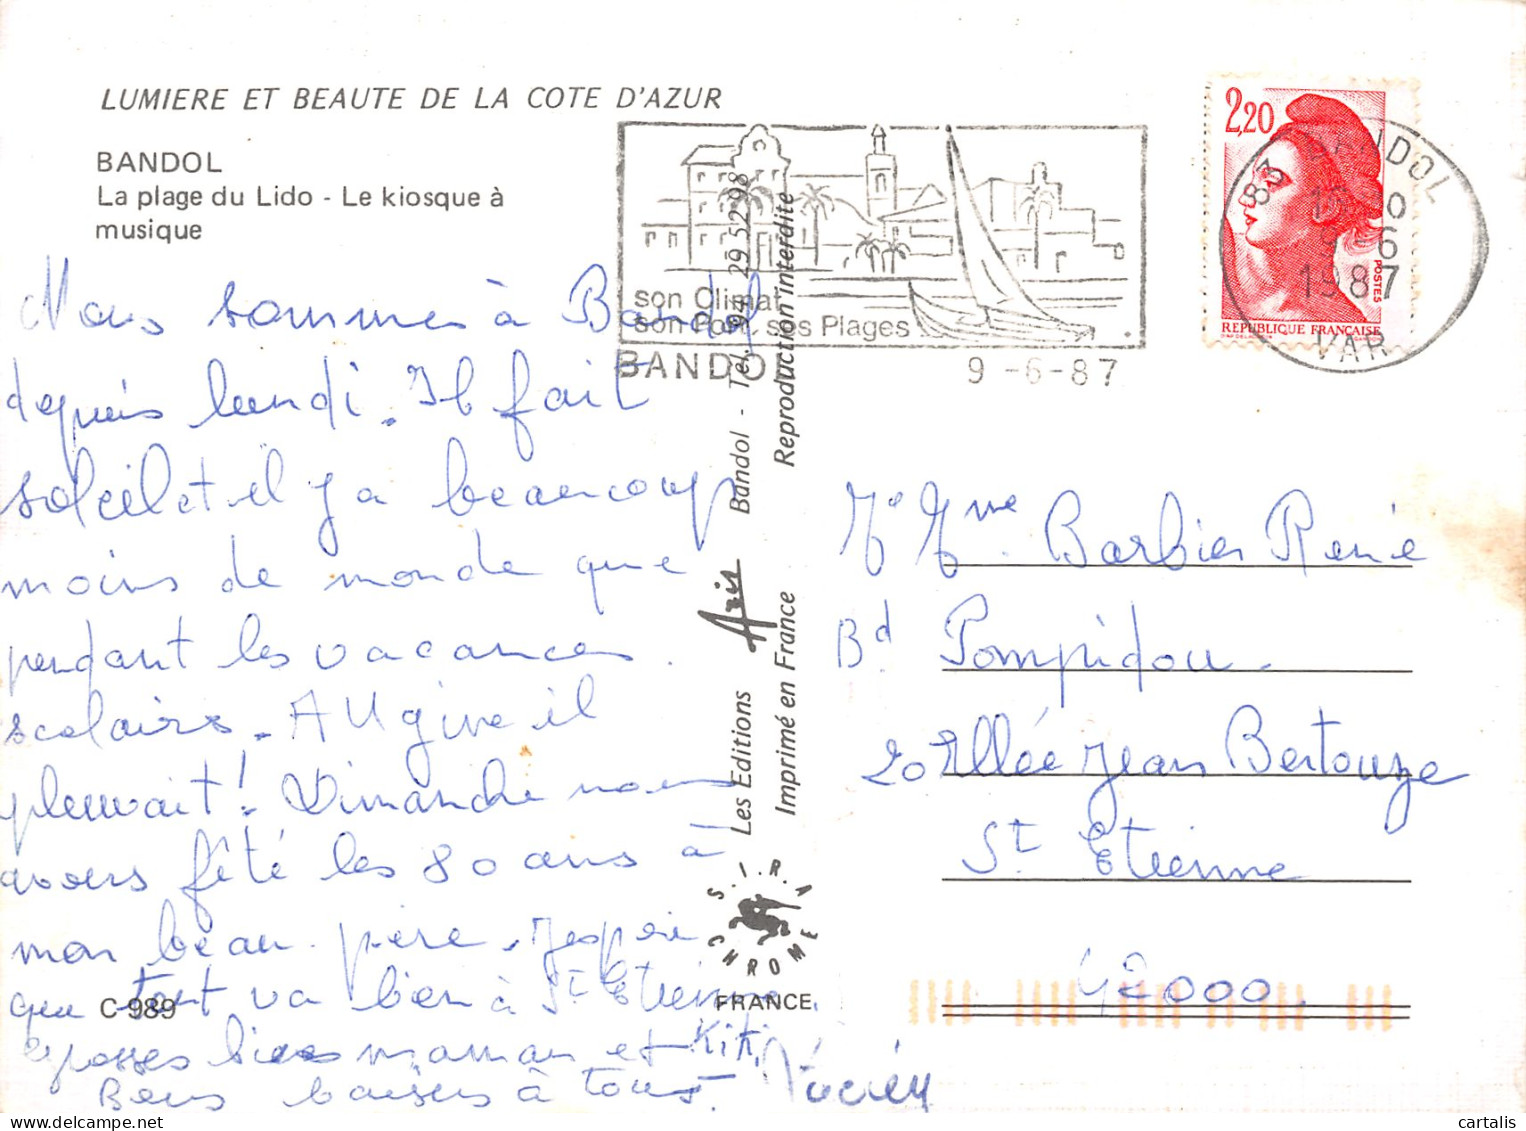 LUMIERE ET BEAUTE DE LA COTE D'AZUR
BANDOL
La plage du Lido - Le kiosque à
musique
Nous sommes à Bandol
depuis lundi. Il fait
soleil et il y a beaucoup
moins de monde que
pendant les vacances
scolaires. A Ugine il
pleuvait! Dimanche nous
avons fêté les 80 ans à
mon beau-père. J'espère
que tout va bien à St Etienne
C-989
grosses bises maman et Kiki.
Bons baisers à tous.
son Climat
son Port, ses Plages
BANDOL
9-6-87
2,20
POSTES
REPUBLIQUE FRANÇAISE
83 BANDOL
9-6
1987
VAR
Les Editions Aris Bandol - Tel. 94 29 52 98
Imprimé en France Reproduction interdite
S.I.R.A
CHROME
FRANCE
Mr Mme Barbier René
Bd Pompidou.
20 Allée Jean Bertouze
St Etienne
42000.
cartalis